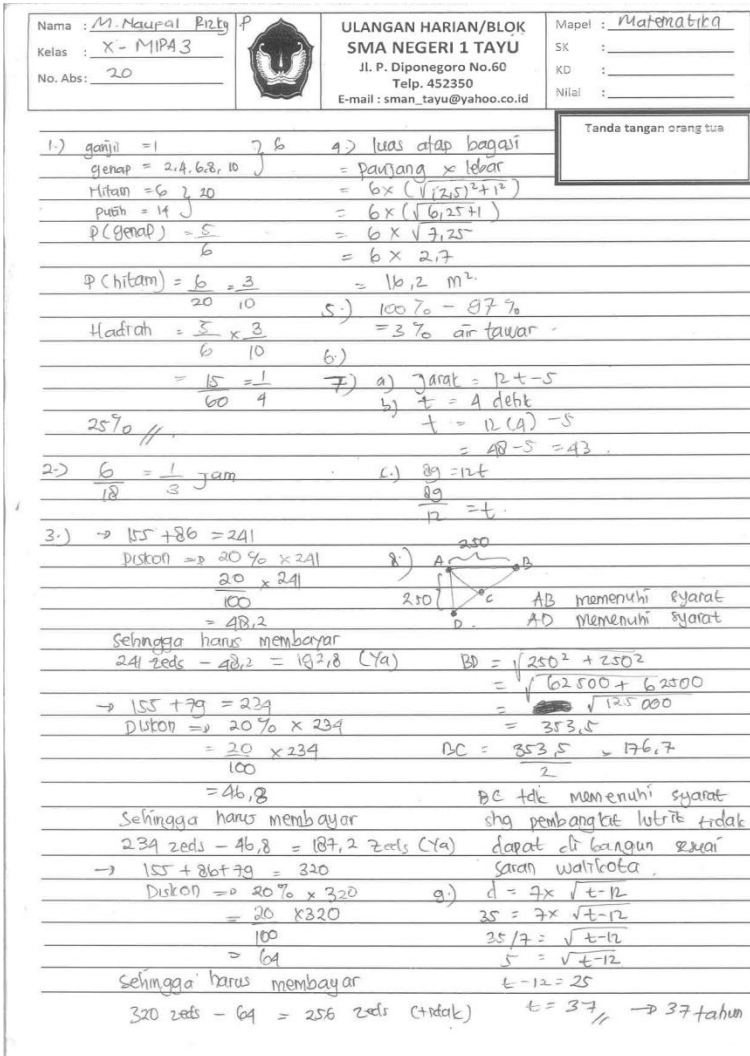 Nama : M. Naupal Rizky P
Kelas : X - MIPA 3
No. Abs: 20
ULANGAN HARIAN/BLOK
SMA NEGERI 1 TAYU
Jl. P. Diponegoro No.60
Telp. 452350
E-mail : sman_tayu@yahoo.co.id
Mapel : Matematika
SK :
KD :
Nilai :
Tanda tangan orang tua
1.) ganjil = 1
genap = 2,4,6,8,10 } 6
Hitam = 6
Putih = 14 } 20
P(genap) = 5/6
P(hitam) = 6/20 = 3/10
Hadiah = 5/6 x 3/10
= 15/60 = 1/4
25% //
2.) 6/18 = 1/3 Jam
3.) → 155 + 86 = 241
Diskon => 20% x 241
20/100 x 241
= 48,2
Sehingga harus membayar
241 zeds - 48,2 = 192,8 (Ya)
→ 155 + 79 = 234
Diskon => 20% x 234
= 20/100 x 234
= 46,8
Sehingga harus membayar
234 zeds - 46,8 = 187,2 zeds (Ya)
→ 155 + 86 + 79 = 320
Diskon => 20% x 320
= 20/100 x 320
= 64
Sehingga harus membayar
320 zeds - 64 = 256 zeds (tidak)
4.) luas atap bagasi
= Panjang x lebar
= 6 x (√(2,5)²+1²)
= 6 x (√6,25+1)
= 6 x √7,25
= 6 x 2,7
= 16,2 m².
5.) 100% - 97%
= 3% air tawar.
6.)
7) a) Jarak = 12t-5
b) t = 4 detik
t = 12(4) - 5
= 48-5 = 43.
c.) 89 = 12t
89/12 = t.
8.) A 250 B
250 C
D
AB memenuhi syarat
AD memenuhi syarat
BD = √250² + 250²
= √62500 + 62500
= √125000
= 353,5
BC = 353,5/2 = 176,7
BC tdk memenuhi syarat
shg pembangkit lutrik tidak
dapat di bangun sesuai
saran walikota.
9.) d = 7x √t-12
35 = 7x √t-12
35/7 = √t-12
5 = √t-12
t-12 = 25
t = 37 // → 37 tahun